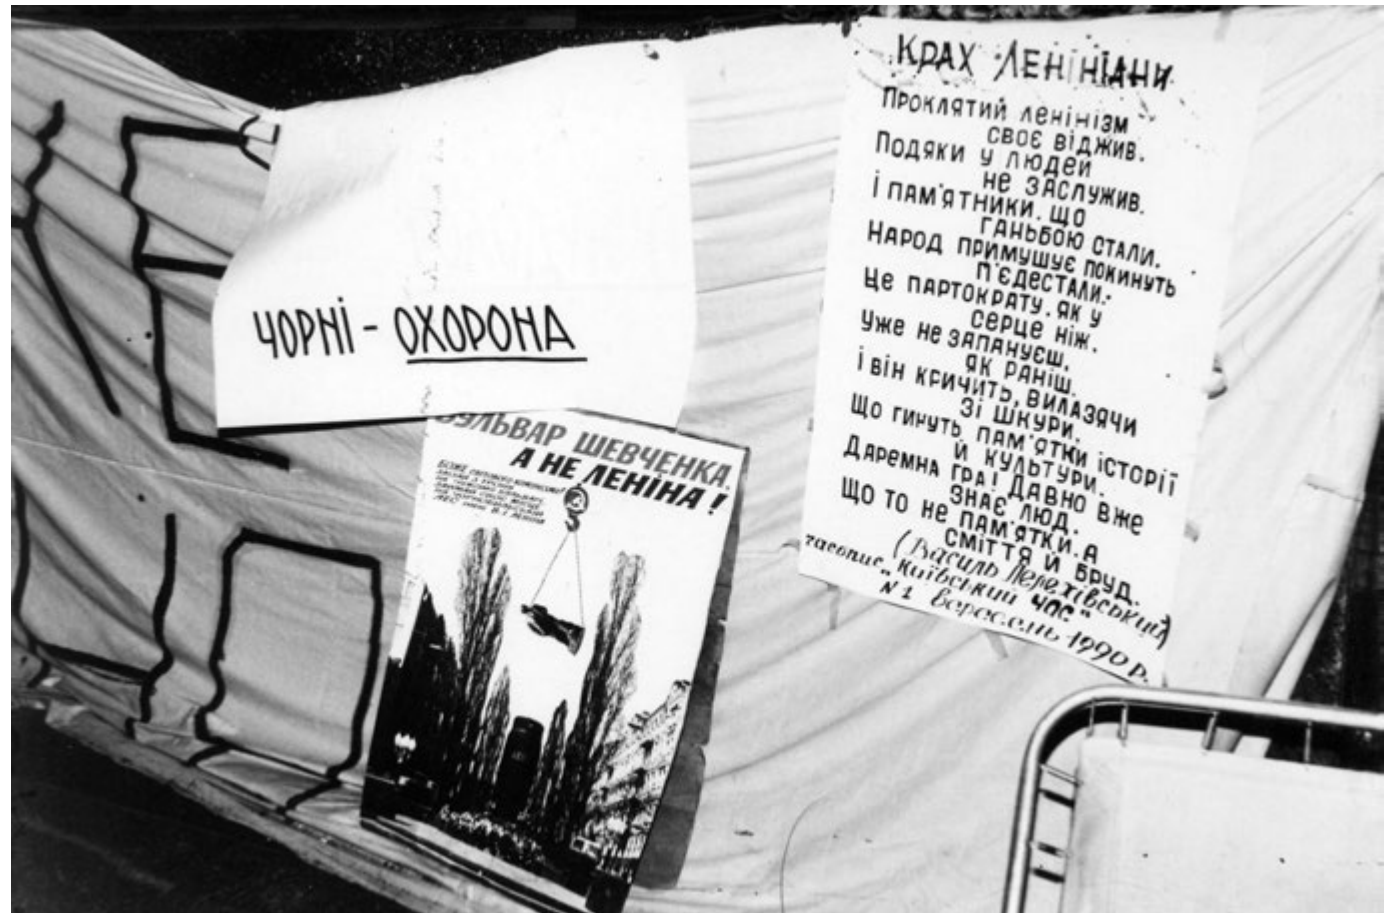 ЧОРНІ - ОХОРОНА
БУЛЬВАР ШЕВЧЕНКА,
А НЕ ЛЕНІНА!
КРАХ ЛЕНІНІАНИ
ПРОКЛЯТИЙ ЛЕНІНІЗМ
СВОЄ ВІДЖИВ.
ПОДЯКИ У ЛЮДЕЙ
НЕ ЗАСЛУЖИВ.
І ПАМ'ЯТНИКИ. ЩО
ГАНЬБОЮ СТАЛИ.
НАРОД ПРИМУШУЄ ПОКИНУТЬ
П'ЄДЕСТАЛИ.
ЦЕ ПАРТОКРАТУ. ЯК У
СЕРЦЕ НІЖ.
УЖЕ НЕ ЗАПАНУЄШ,
ЯК РАНІШ.
І ВІН КРИЧИТЬ, ВИЛАЗЯЧИ
ЗІ ШКУРИ.
ЩО ГИНУТЬ ПАМ'ЯТКИ ІСТОРІЇ
Й КУЛЬТУРИ.
ДАРЕМНА ГРА! ДАВНО ВЖЕ
ЗНАЄ ЛЮД.
ЩО ТО НЕ ПАМ'ЯТКИ. А
СМІТТЯ Й БРУД.
(Василь Перехівський)
часопис „Київський ЧАС"
N 1 вересень 1990 р.